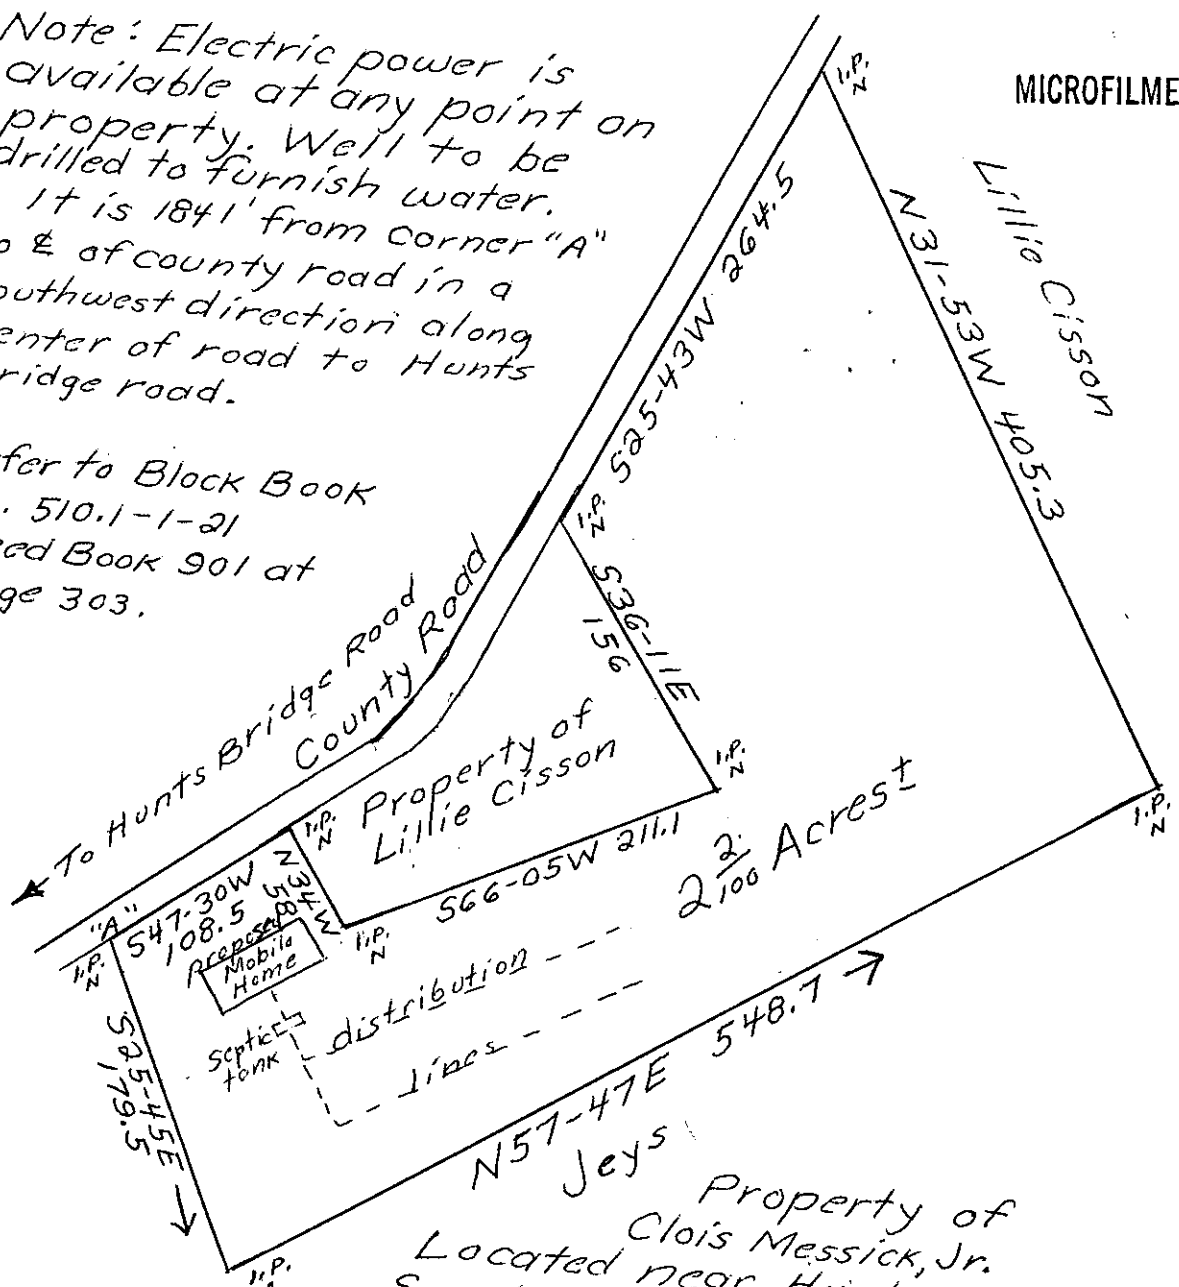 Note: Electric power is
available at any point on
property. Well to be
drilled to furnish water.
It is 1841' from corner "A"
o ℄ of county road in a
outhwest direction along
enter of road to Hunts
ridge road.
fer to Block Book
. 510.1-1-21
eed Book 901 at
ge 303.
MICROFILME
I.P.
N
Lillie Cisson
N31-53W 405.3
S25-43W 264.5
I.P.
N
S36-11E
156
I.P.
N
To Hunts Bridge Road
County Road
Property of
Lillie Cisson
I.P.
N
N34W
58
S66-05W 211.1
I.P.
N
2 2/100 Acres±
I.P.
N
"A"
I.P.
N
S47-30W
108.5
proposed
Mobile
Home
septic
tank
distribution
lines
S25-45E
179.5
N57-47E 548.7
Jeys
I.P.
Property of
Clois Messick, Jr.
Located near